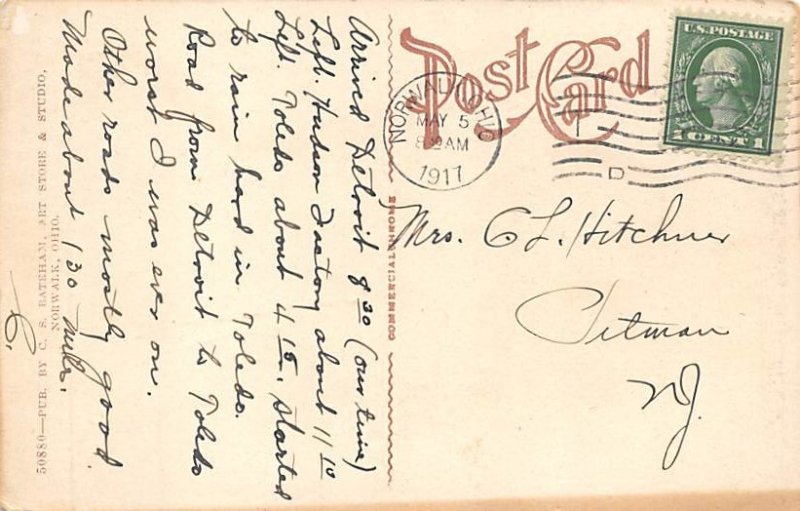 Post Card
U.S. POSTAGE
1 CENT 1
NORWALK, OHIO
MAY 5
8 30 AM
1917
D
Arrived Detroit 8 30 (our time)
Left. Hudson Factory about 11 10
Left. Toledo about 4 15. Started
to rain hard in Toledo.
Road from Detroit to Toledo
worst I was ever on.
Other roads mostly good
Made about 130 miles.
C.
Mrs. C L. Hitchner
Pitman
NJ.
COMMERCIALCHROME
50880—PUB. BY C. S. BATEHAM, ART STORE & STUDIO,
NORWALK, OHIO.